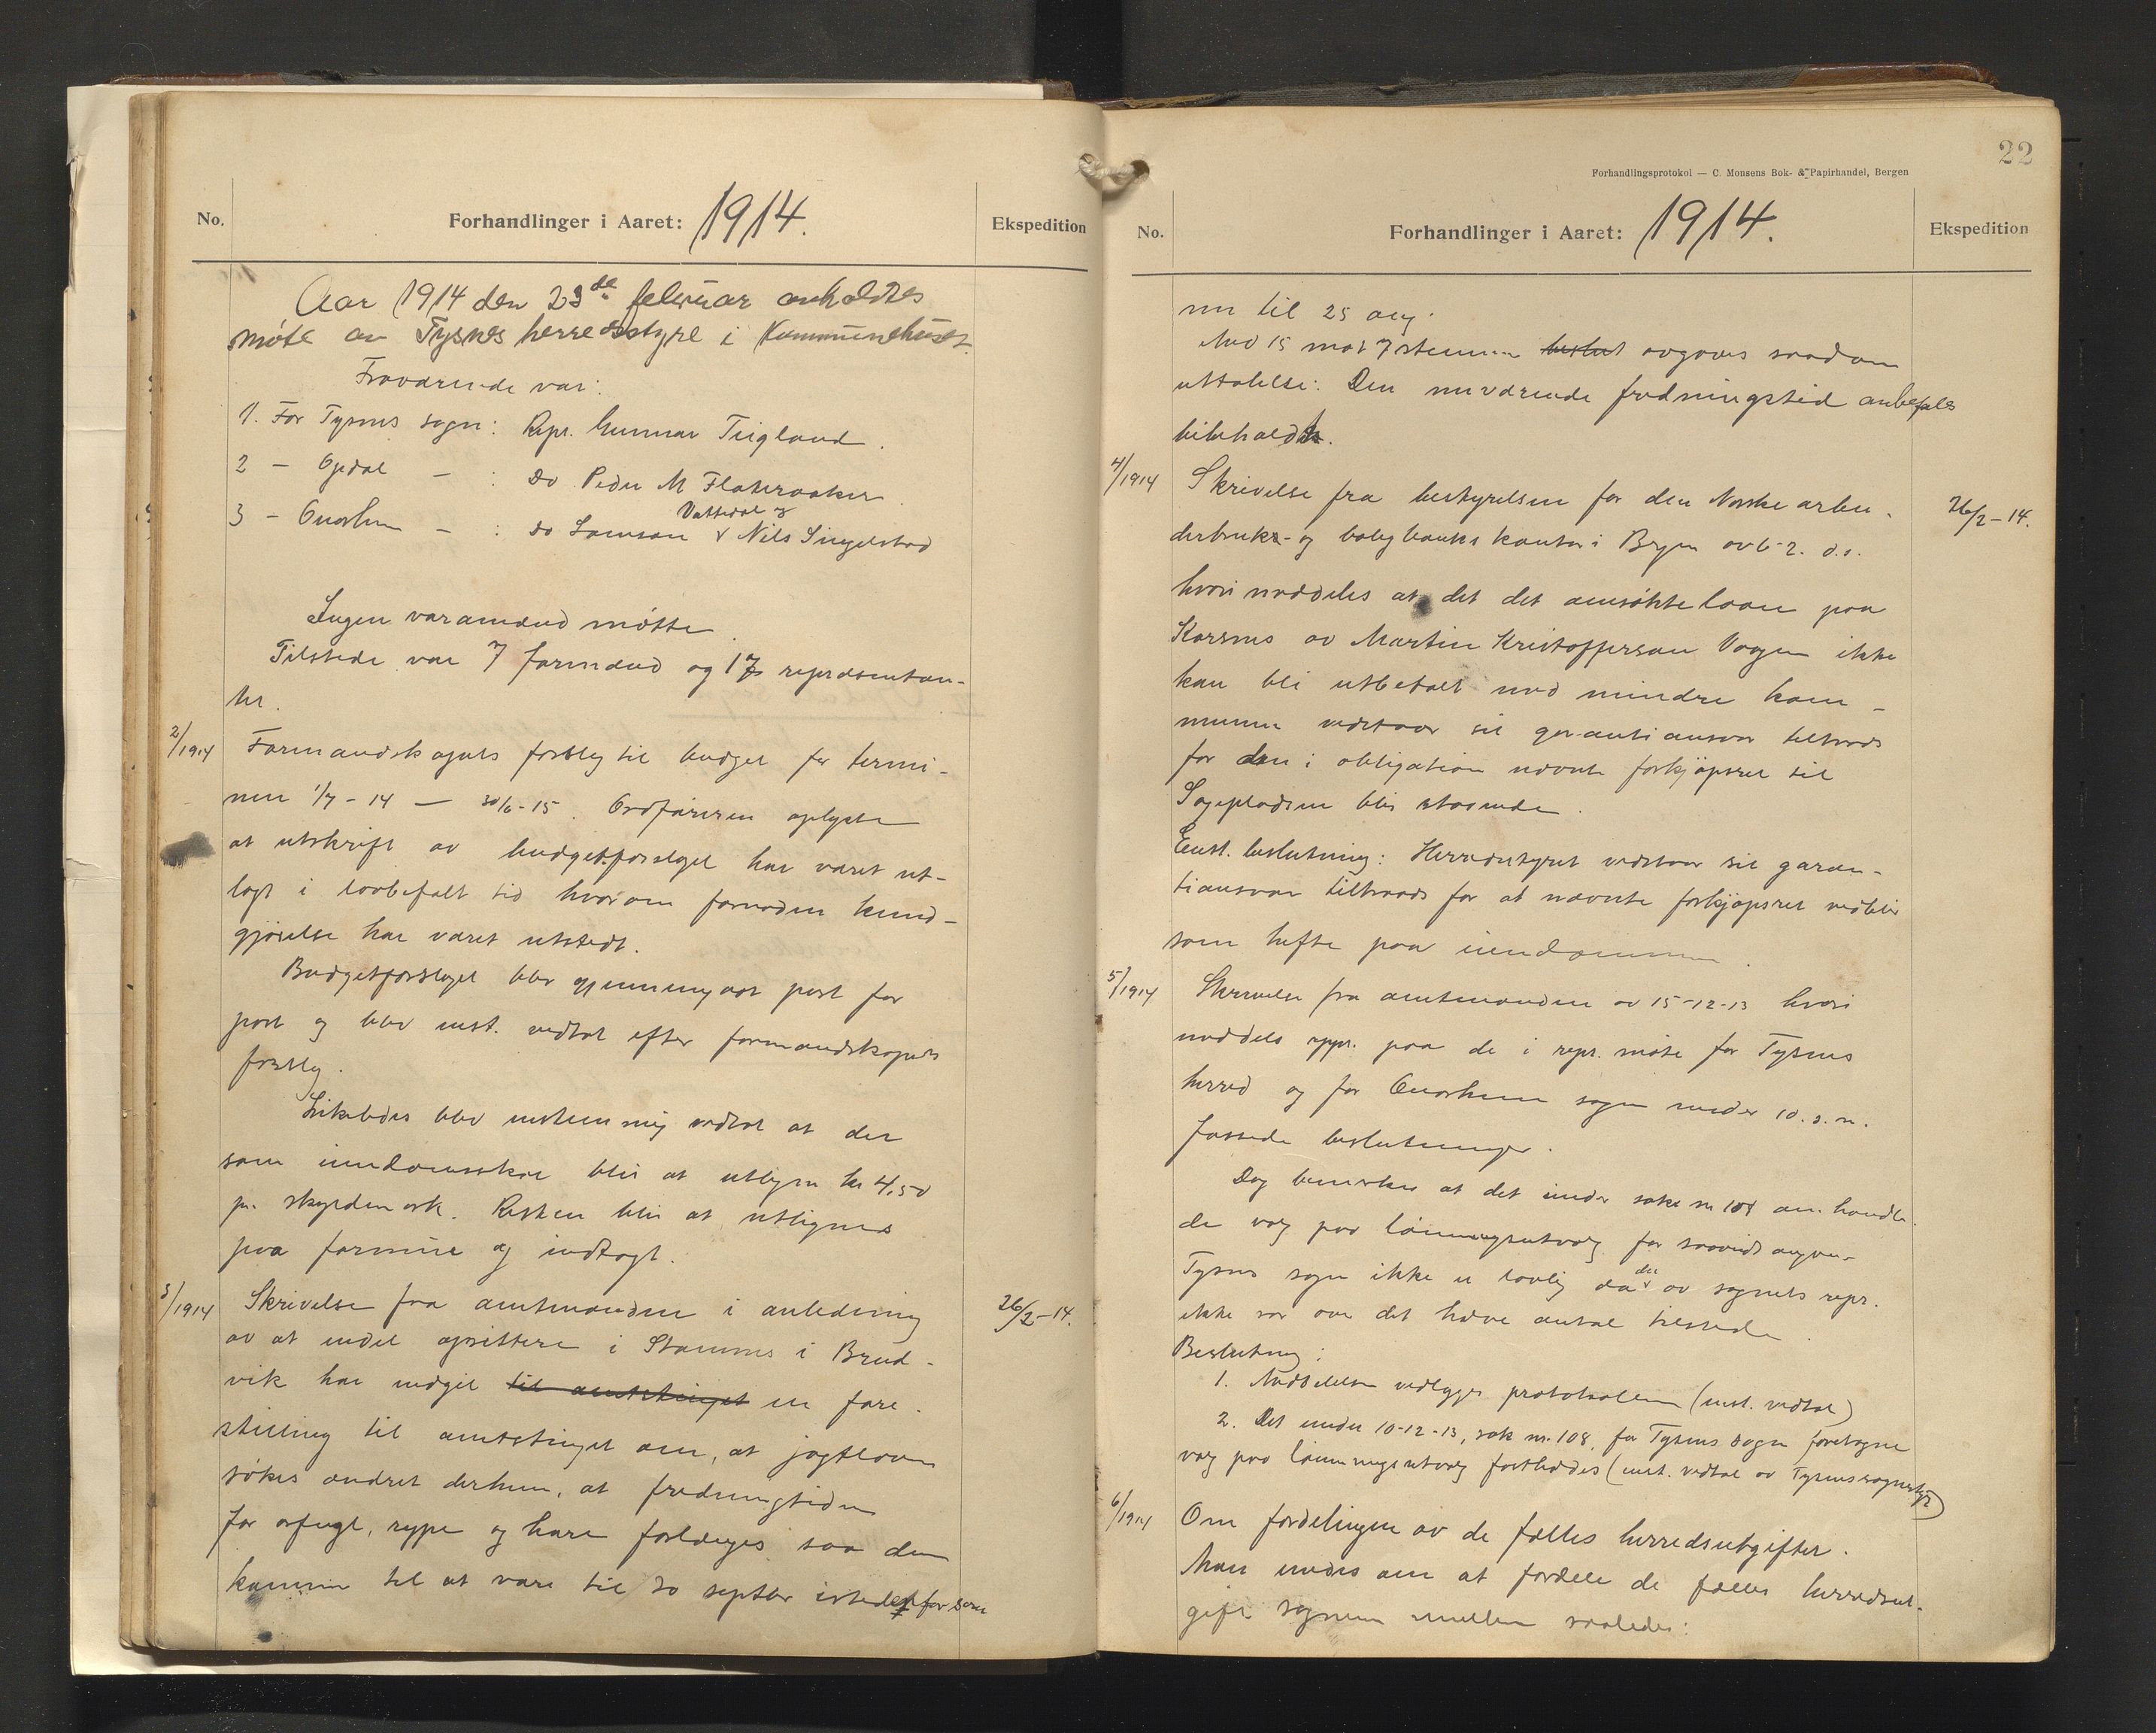 No. Forhandlinger i Aaret: 1914. Ekspedition
Aar 1914 den 23de februar avholdtes
møte av Tysnes herredsstyre i Kommunehuset.
Fraværende var:
1. For Tysnes sogn: Repr. Gunnar Teigland.
2 - Opdal - : Do Peder M Flakeraaker.
3 - Onarheim - : do Samson Vattedal og Nils Singelstad
Ingen varamænd møtte.
Tilstede var 7 formænd og 17 repræsentan-
ter.
2/1914 Formandskapets forslag til budget for termi-
nen 1/7-14 — 30/6-15. Ordføreren oplyste
at utskrift av budgetforslaget har været ut-
lagt i lovbefalt tid hvorom fornøden kund-
gjørelse har været utstedt.
Budgetforslaget blev gjennemgaat post for
post og blev enst. vedtat efter formandskapets
forslag.
Likeledes blev enstemmig vedtat at der
som eiendomsskat blir at utligne kr 4,50
pr. skyldmark. Resten blir at utlignes
paa formue og indtægt.
3/1914 Skrivelse fra amtmanden i anledning 26/2-14.
av at endel opsittere i Stamnes i Brud-
vik har indgit til amtstinget en fore-
stilling til amtstinget om, at jagtloven
søkes ændret derhen, at fredningstiden
for orfugl, rype og hare forlænges saa den
kommer til at vare til 30 septbr istedetfor som
22
Forhandlingsprotokol — C. Monsens Bok- & Papirhandel, Bergen
No. Forhandlinger i Aaret: 1914. Ekspedition
nu til 25 aug.
Med 15 mot 7 stemmer beslut avgaves saadan
uttalelse: Den nuværende fredningstid anbefales
bibeholdt.
4/1914 Skrivelse fra bestyrelsen for den Norske arbei- 26/2-14.
derbruks- og boligbanks kontor i Bergen av 6-2. d.a.
hvori meddeles at det det ansøkte laan paa
Korsnes av Martin Kristofferson Vaagen ikke
kan bli utbetalt med mindre kom-
munen vedstaar sit garantiansvar tiltrods
for den i obligation nævnte forkjøpsret til
Sagepladsen blir staaende.
Enst. beslutning: Herredsstyret vedstaar sit garan-
tiansvar tiltrods for at nævnte forkjøpsret vedblir
som hefte paa eiendommen.
5/1914 Skrivelse fra amtmanden av 15-12-13 hvori
meddeles appr. paa de i repr. møte for Tysnes
herred og for Onarheim sogn under 10. s.m.
fattede beslutninger.
Dog bemerkes at det under sake nr 108 om handle-
de valg paa lønningsutvalg for saavidt angaar
Tysnes sogn ikke er lovlig da der av sognets repr.
ikke var over det halve antal tilstede.
Beslutning:
1. Meddelelsen vedlægges protokollen (enst. vedtat)
2. Det under 10-12-13, sak nr. 108, for Tysnes sogn foretagne
valg paa lønningsutvalg (enst. vedtat av Tysnes sognestyre)
6/1914 Om fordelingen av de fælles herredsutgifter.
Man enedes om at fordele de fælles herredsut-
gift sognene mellem saaledes: